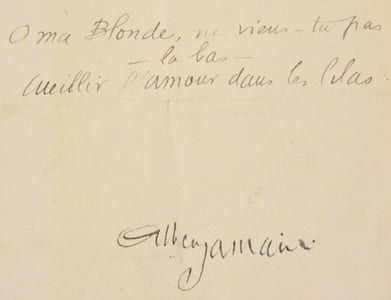 O ma Blonde, ne viens-tu pas
- la bas -
Cueillir l'amour dans les lilas.